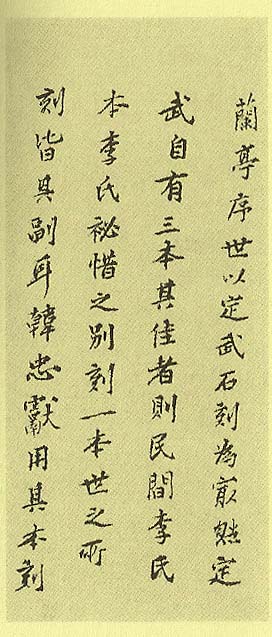 蘭亭序世以定武石刻為冣然定
武自有三本其佳者則民間李氏
本李氏祕惜之別刻一本世之所
刻皆其副耳韓忠獻用其本刻